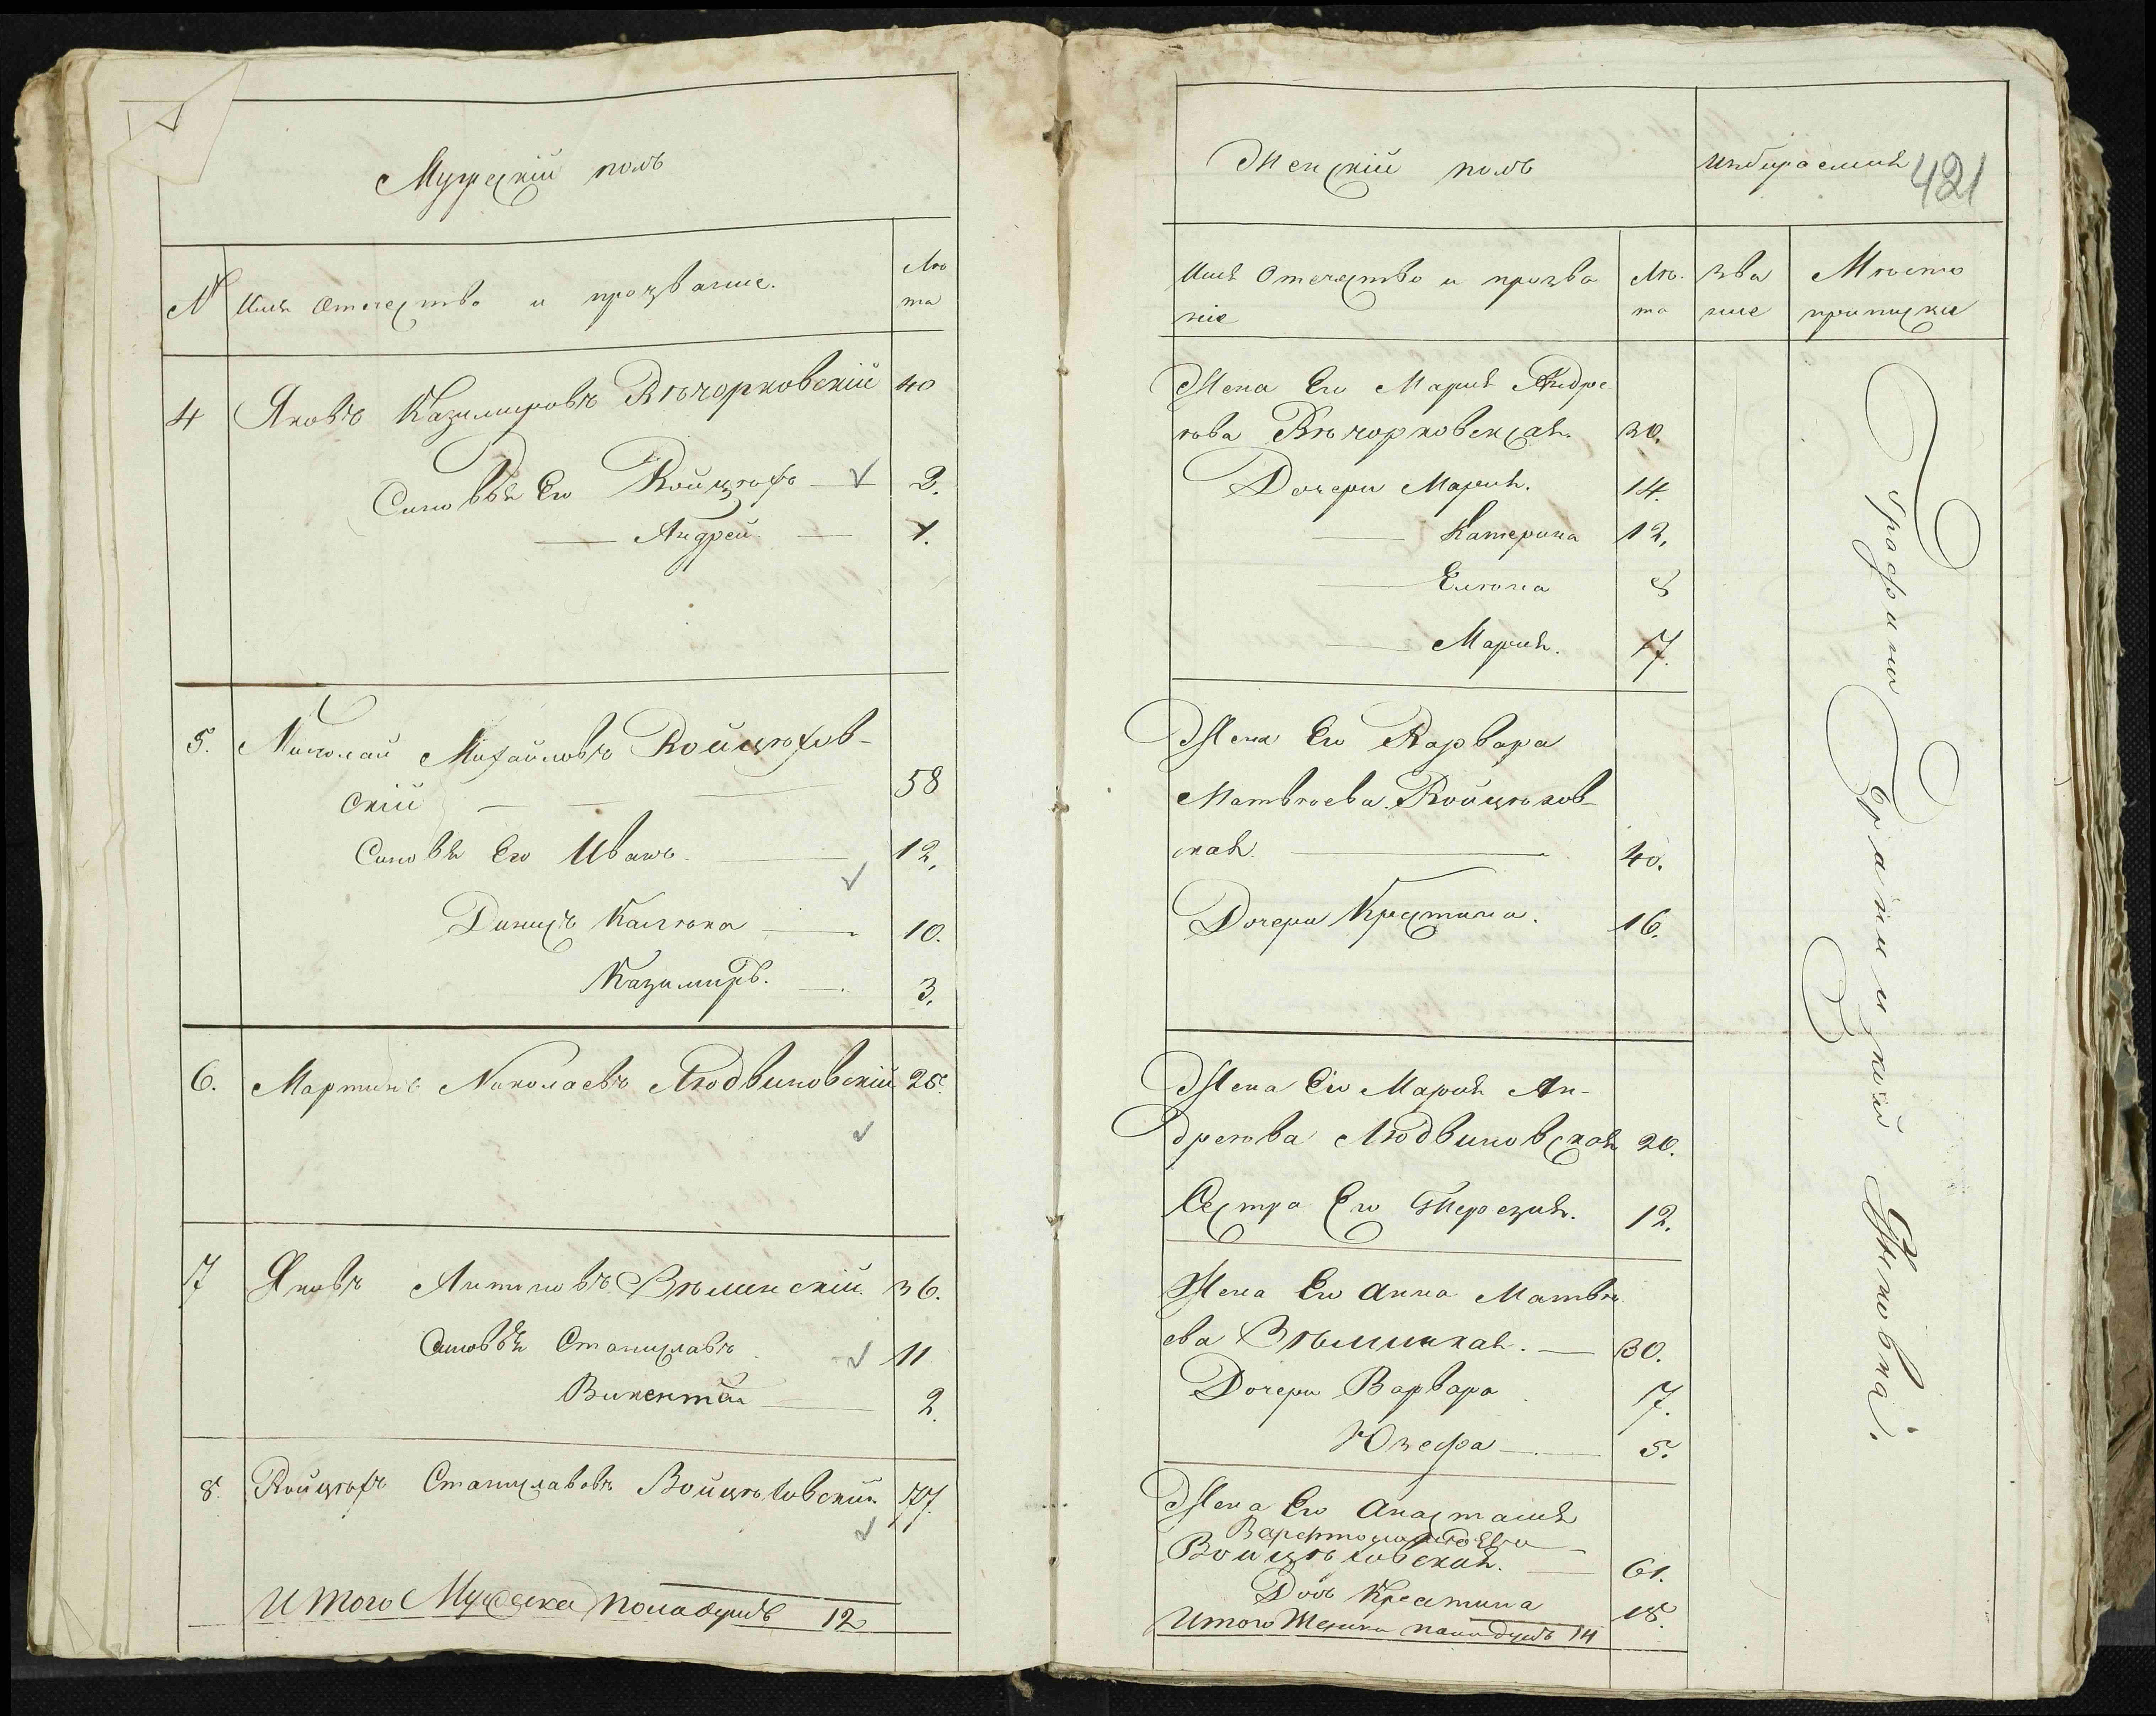 Мужескій полъ
№ Имя Отчество и прозваніе.
Лѣ
та
4 Яковъ Казимировъ Вѣчорковскій 40
Сыновья Его Войцѣхъ 2.
Андрей 1.
5. Николай Михайловъ Войцѣхов-
скій 58
Сыновья Его Иванъ 12.
10.
Казимиръ. 3.
6. Мартинъ Николаевъ Людвиновскій 25.
7 Яковъ Антоновъ Вѣминскій. 36.
Сыновья Станиславъ 11
Викентій 2.
8. Войцѣхъ Станиславовъ Войцѣховскій 77.
Итого Мужеска пола душъ 12
Женскій полъ
421
Имя Отечество и прозва
ніе
Лѣ.
та
Зва
ніе
Мѣсто
приписки
Жена Его Марія Андре
ѣва Вѣчорковская. 30.
Дочери Марія. 14.
Катерина 12.
Елѣна 8
Марія. 7.
Жена Его Варвара
Матвѣева Войцѣхов-
ская 40.
Дочери Крестина. 16.
Жена Его Марія Ан-
дреѣва Людвиновская 20.
Сестра Его Терезія. 12.
Жена Его Анна Матвѣ
ева Вѣминская. 30.
Дочери Варвара 7.
Юзефа 5.
Жена Его Анастасія
Войцѣховская. 61.
Дочь Крестина 18.
Итого Женска пола душъ 14
Графини Браницкой Яновка.